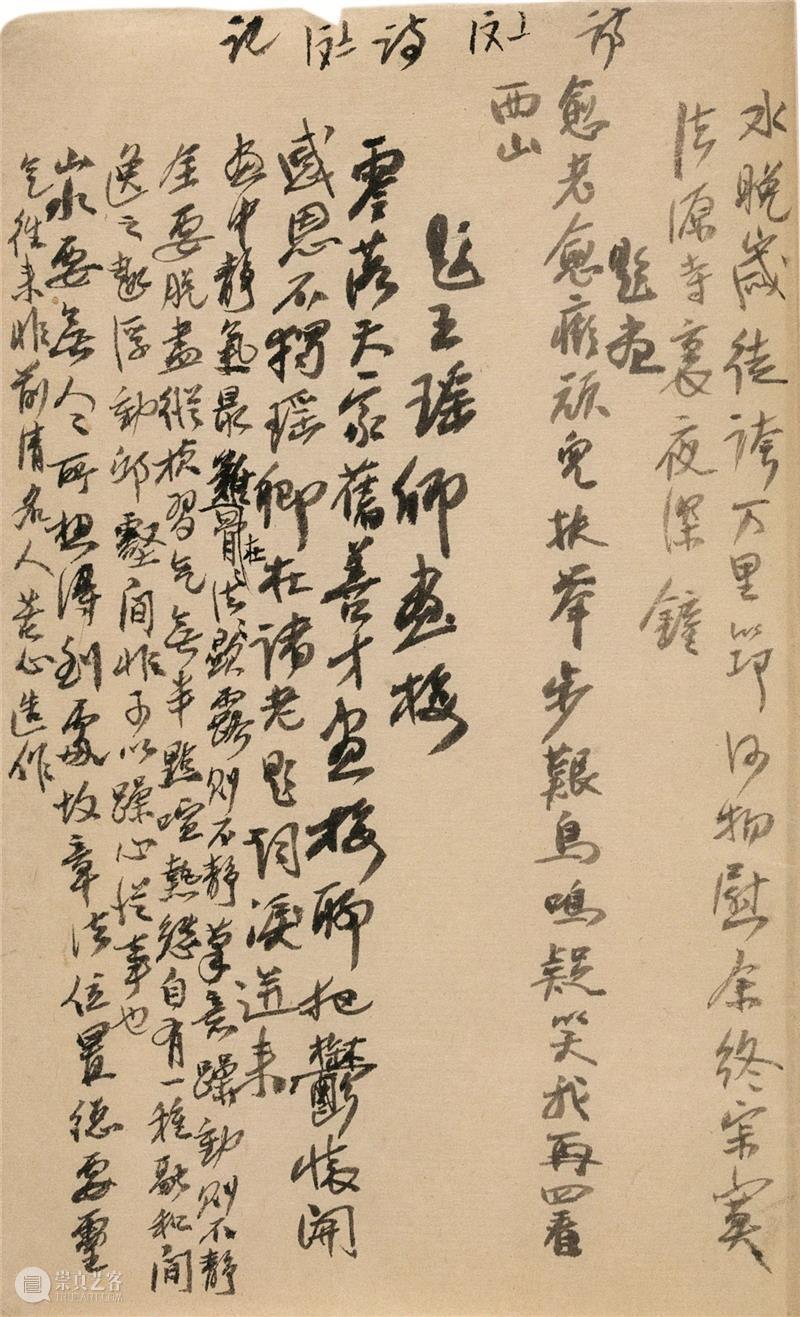 記 詩 詩
水晚歲徒誇万里筇何物慰余終寂寞
法源寺裏夜深鐘
題畫
愈老愈癲頑兒扶举步艱鳥鳴疑笑我再四看
西山
題王瑤卿畫梅
零落天家舊善才畫梅聊把鬱懷開
感恩不獨瑤卿在諸老題詞淚迸來
畫中靜氣最難在骨法顯露則不靜筆意躁動則不靜
全要脫盡縱横習气無半點喧熱態自有一種融和閒
逸之趣浮動邱壑間非可以躁心從事也
山水要無人人所想得到處故章法位置總要靈
气往來非前清名人苦心造作
崇真艺客